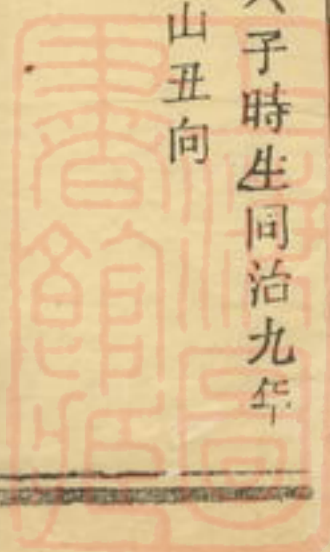 子時生同治九年
山丑向